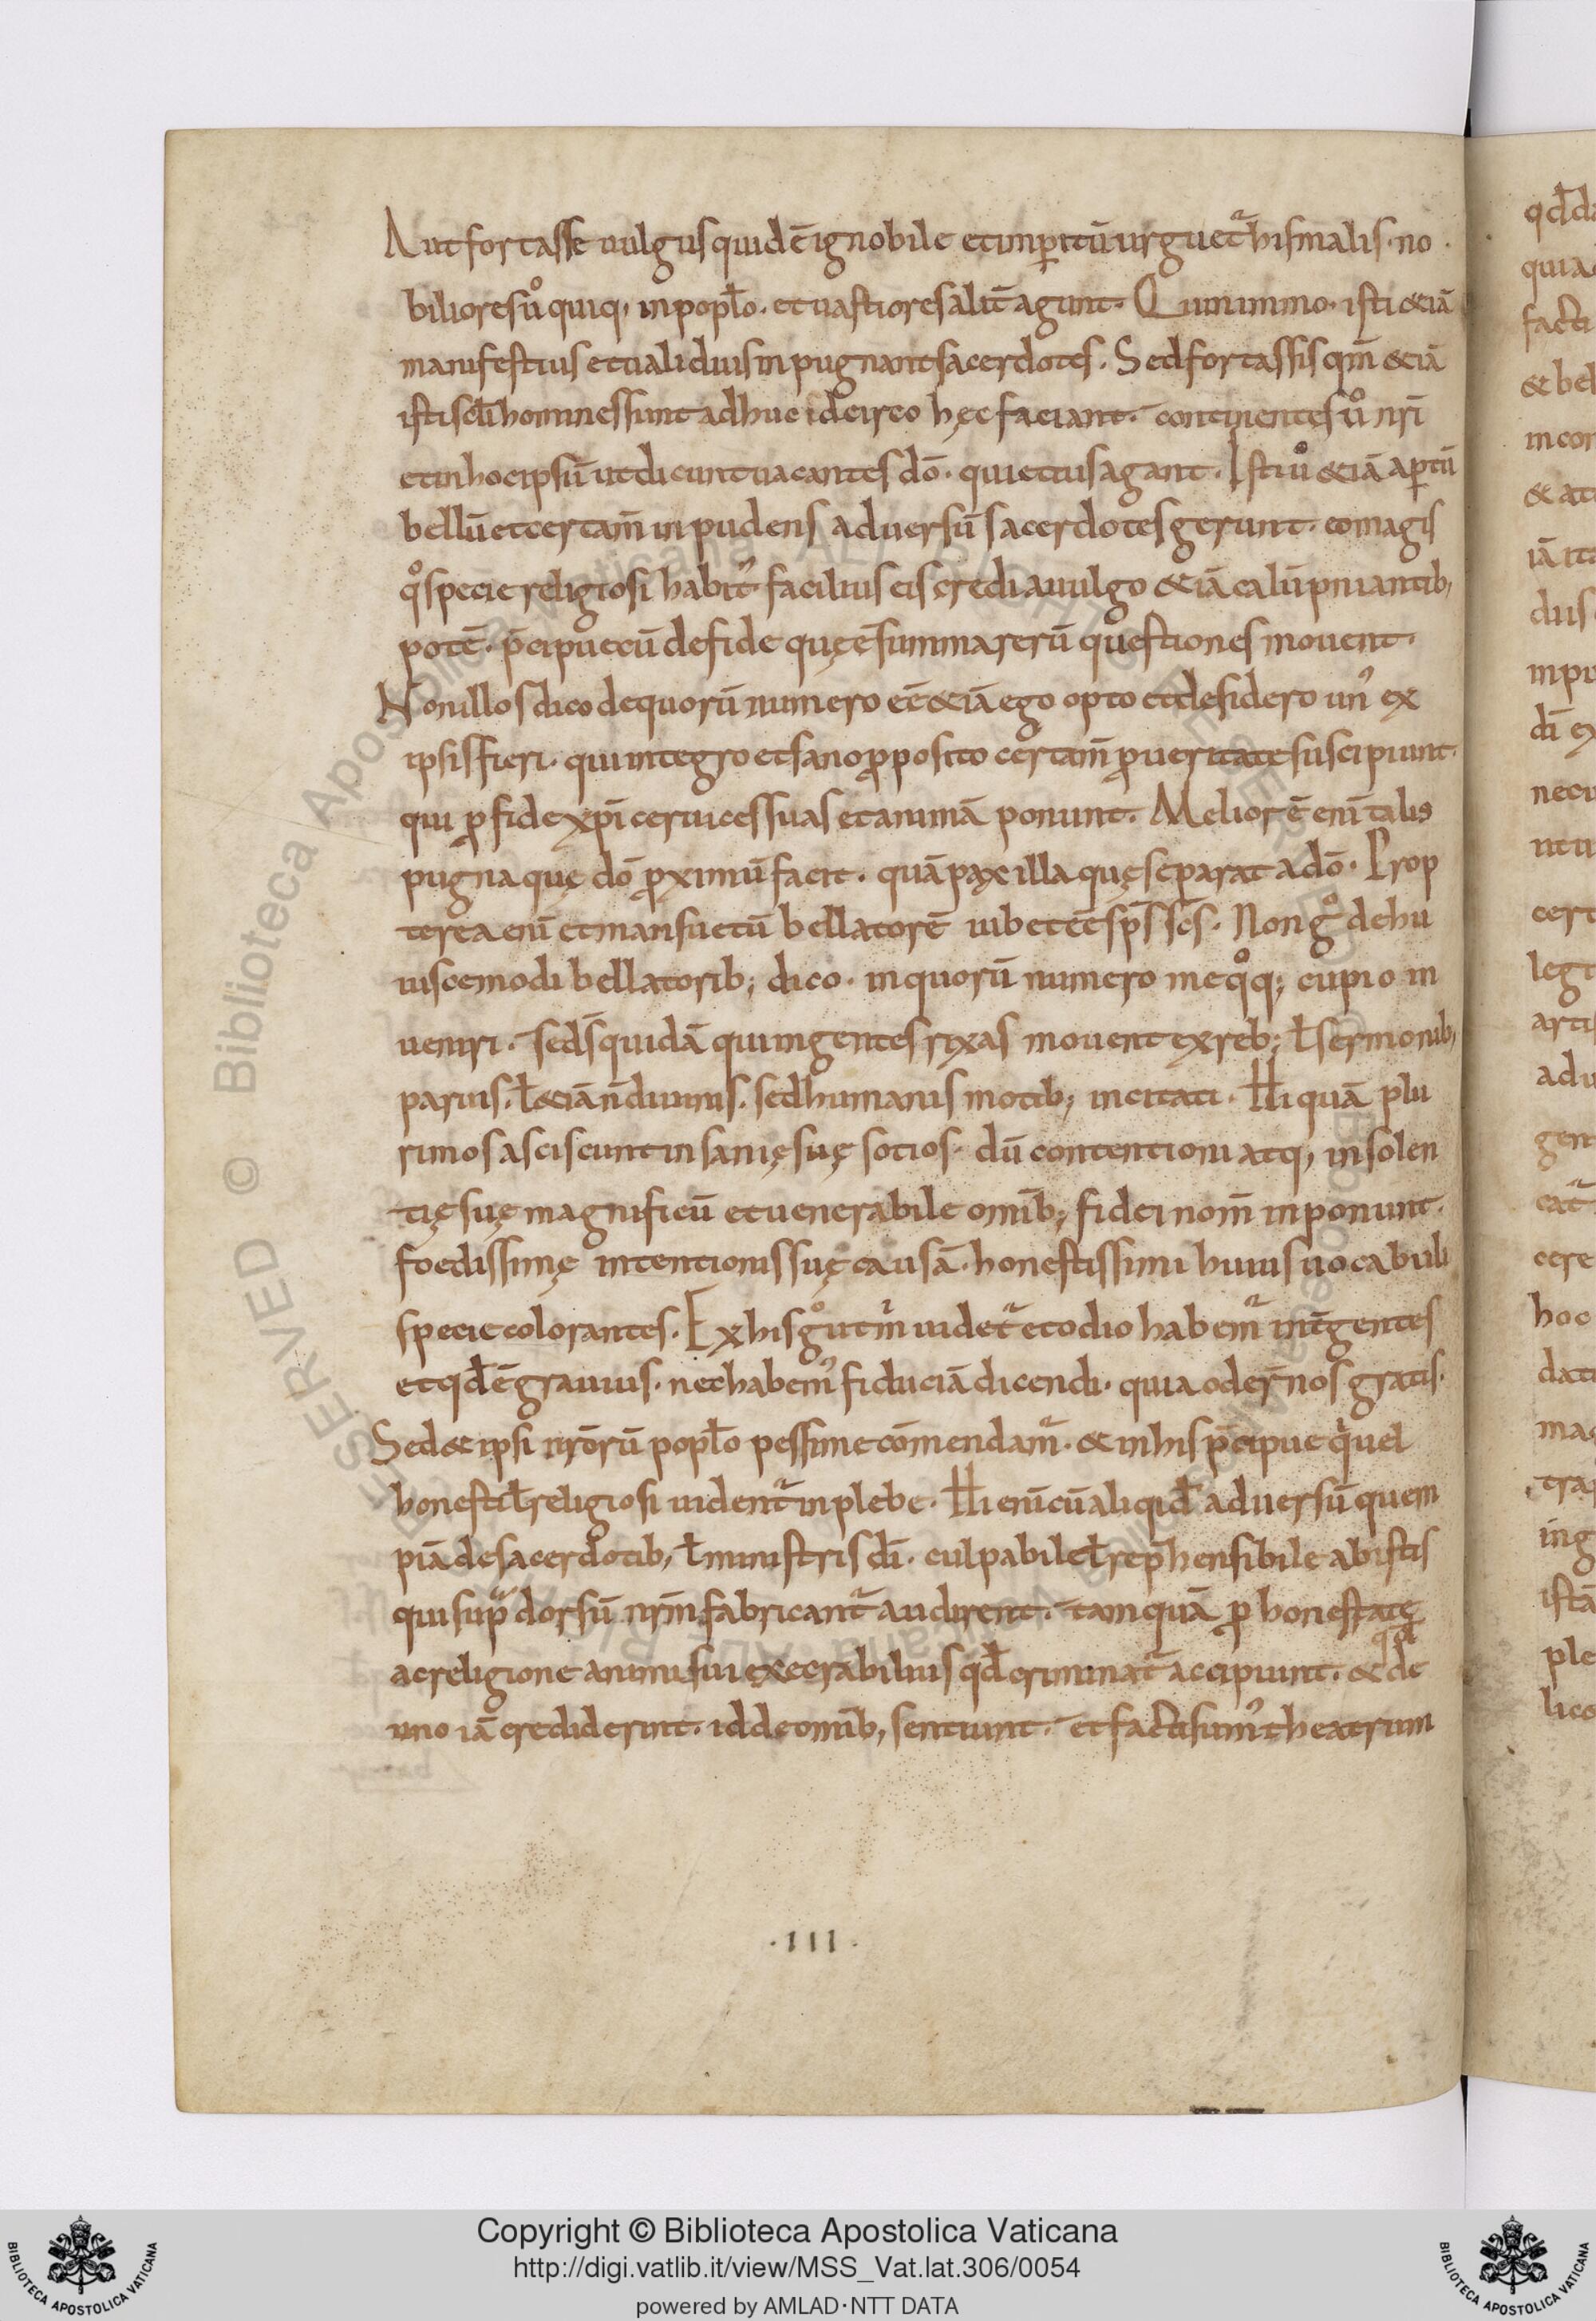 Aut fortasse uulgus quidē ignobile et inꝑitū urguet᷑ his malis · no
biliores ů quiq; in popl̄o · et uastiores alit̄ agunt · Quinimmo · isti &iā
manifestius et ualidius inpugnant sacerdotes · Sed fortassis qm̄ &iā
isti sclī homines sunt adhuc idcirco hęc faciant · continentes ů nr̄i
et in hoc ipsū ut dicunt uacantes dō · quietius agant · Isti ů &iā aꝑtū
bellū et certam̄ inpudens aduersū sacerdotes gerunt · eo magis
qͦ specie religiosi habit᷒ · facilius eis credi a uulgo &iā calūpniantib;
potē · p̄cipue cū de fide quę ē summa rerū questiones mouent ·
Non illos dico de quorū numero eē &iā ego opto et desidero un᷒ ex
ipsis fieri · qui integro et sano ꝓposito certam̄ ꝓ ueritate suscipiunt ·
qui ꝓ fide xp̄i ceruices suas et animā ponunt · Melior ē enī talis
pugna quę dō ꝓximū facit · quā pax illa quę separat a dō · Prop
terea enī et mansuetū bellatorē iubet eē sp̄s sc̄s · Non gͦ de hu
iuscemodi bellatorib; dico · in quorū numero me qͦq; cupio in
ueniri · sed s̄ quidā qui ingentes rixas mouent ex reb; ł sermonib;
paruis · ł &iā n̄ diuinis · sed humanis motib; incitati · Hi quā plu
rimos asciscunt insanię suę sotios · dū contentioni atq; insolen
tię suę magnificū et uenerabile omīb; fidei nom̄ inponunt ·
foedissimę intentionis suę causā · honestissimi huius uocabuli
specie colorantes · Ex his gͦ ut m̄ uidet᷑ et odio habem᷑ int̄ gentes
et qđ ē grauius · nec habem᷒ fiduciā dicendi · quia oder̄ nos gratis ·
Sed & ipsi nr̄orū popl̄o pessime cōmendam᷑ · & in his p̄cipue qͥ uel
honesti ł religiosi uident᷑ in plebe · Hi enī cū aliqid aduersū quem
piā de sacerdotib; ł ministris dī · culpabile ł rep̄hensibile ab istis
qui supͣ dorsū nr̄m fabricant᷑ audirent · tamquā ꝓ honestate
ac religione animi sui execrabilius qđ criminat᷑ accipiunt · & qđ de
uno iā crediderint · id de omīb; sentiunt · et facti sum᷒ theatrum
· III ·
qđ da
quia
facti
& bel
in con
& at
iā ita
dus
inpu
dī ex
necu
ut u
cert
legi
artis
adu
gent
cat᷑
cere
hoc
dati
mag
tra
ing
istā
ple
lico
Biblioteca Apostolica Vaticana
Copyright © Biblioteca Apostolica Vaticana
http://digi.vatlib.it/view/MSS_Vat.lat.306/0054
powered by AMLAD·NTT DATA
BIBLIOTECA APOSTOLICA VATICANA
BIBLIOTECA APOSTOLICA VATICANA